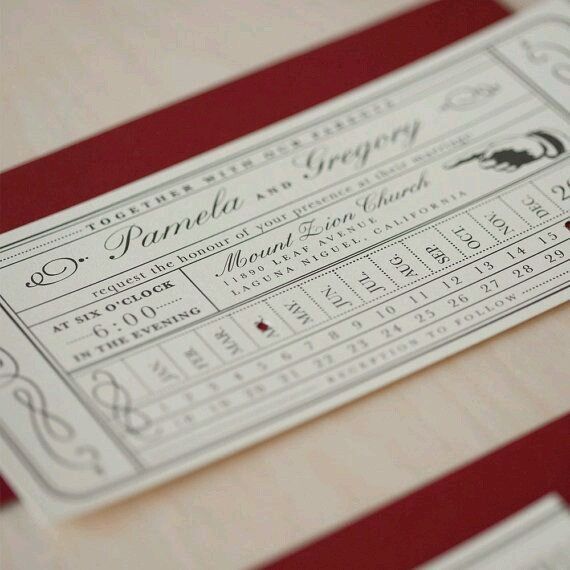 TOGETHER WITH OUR PARENTS
Pamela AND Gregory
request the honour of your presence at their marriage
AT SIX O'CLOCK
6:00
IN THE EVENING
Mount Zion Church
11890 LEAF AVENUE
LAGUNA NIGUEL, CALIFORNIA
JAN FEB. MAR. A MAY. JUN. JUL. AUG. SEP. OCT. NOV. DEC. 20
1 2 3 4 5 6 7 8 9 10 11 12 13 14 15
18 19 20 21 22 23 24 25 26 27 28 29
RECEPTION TO FOLLOW